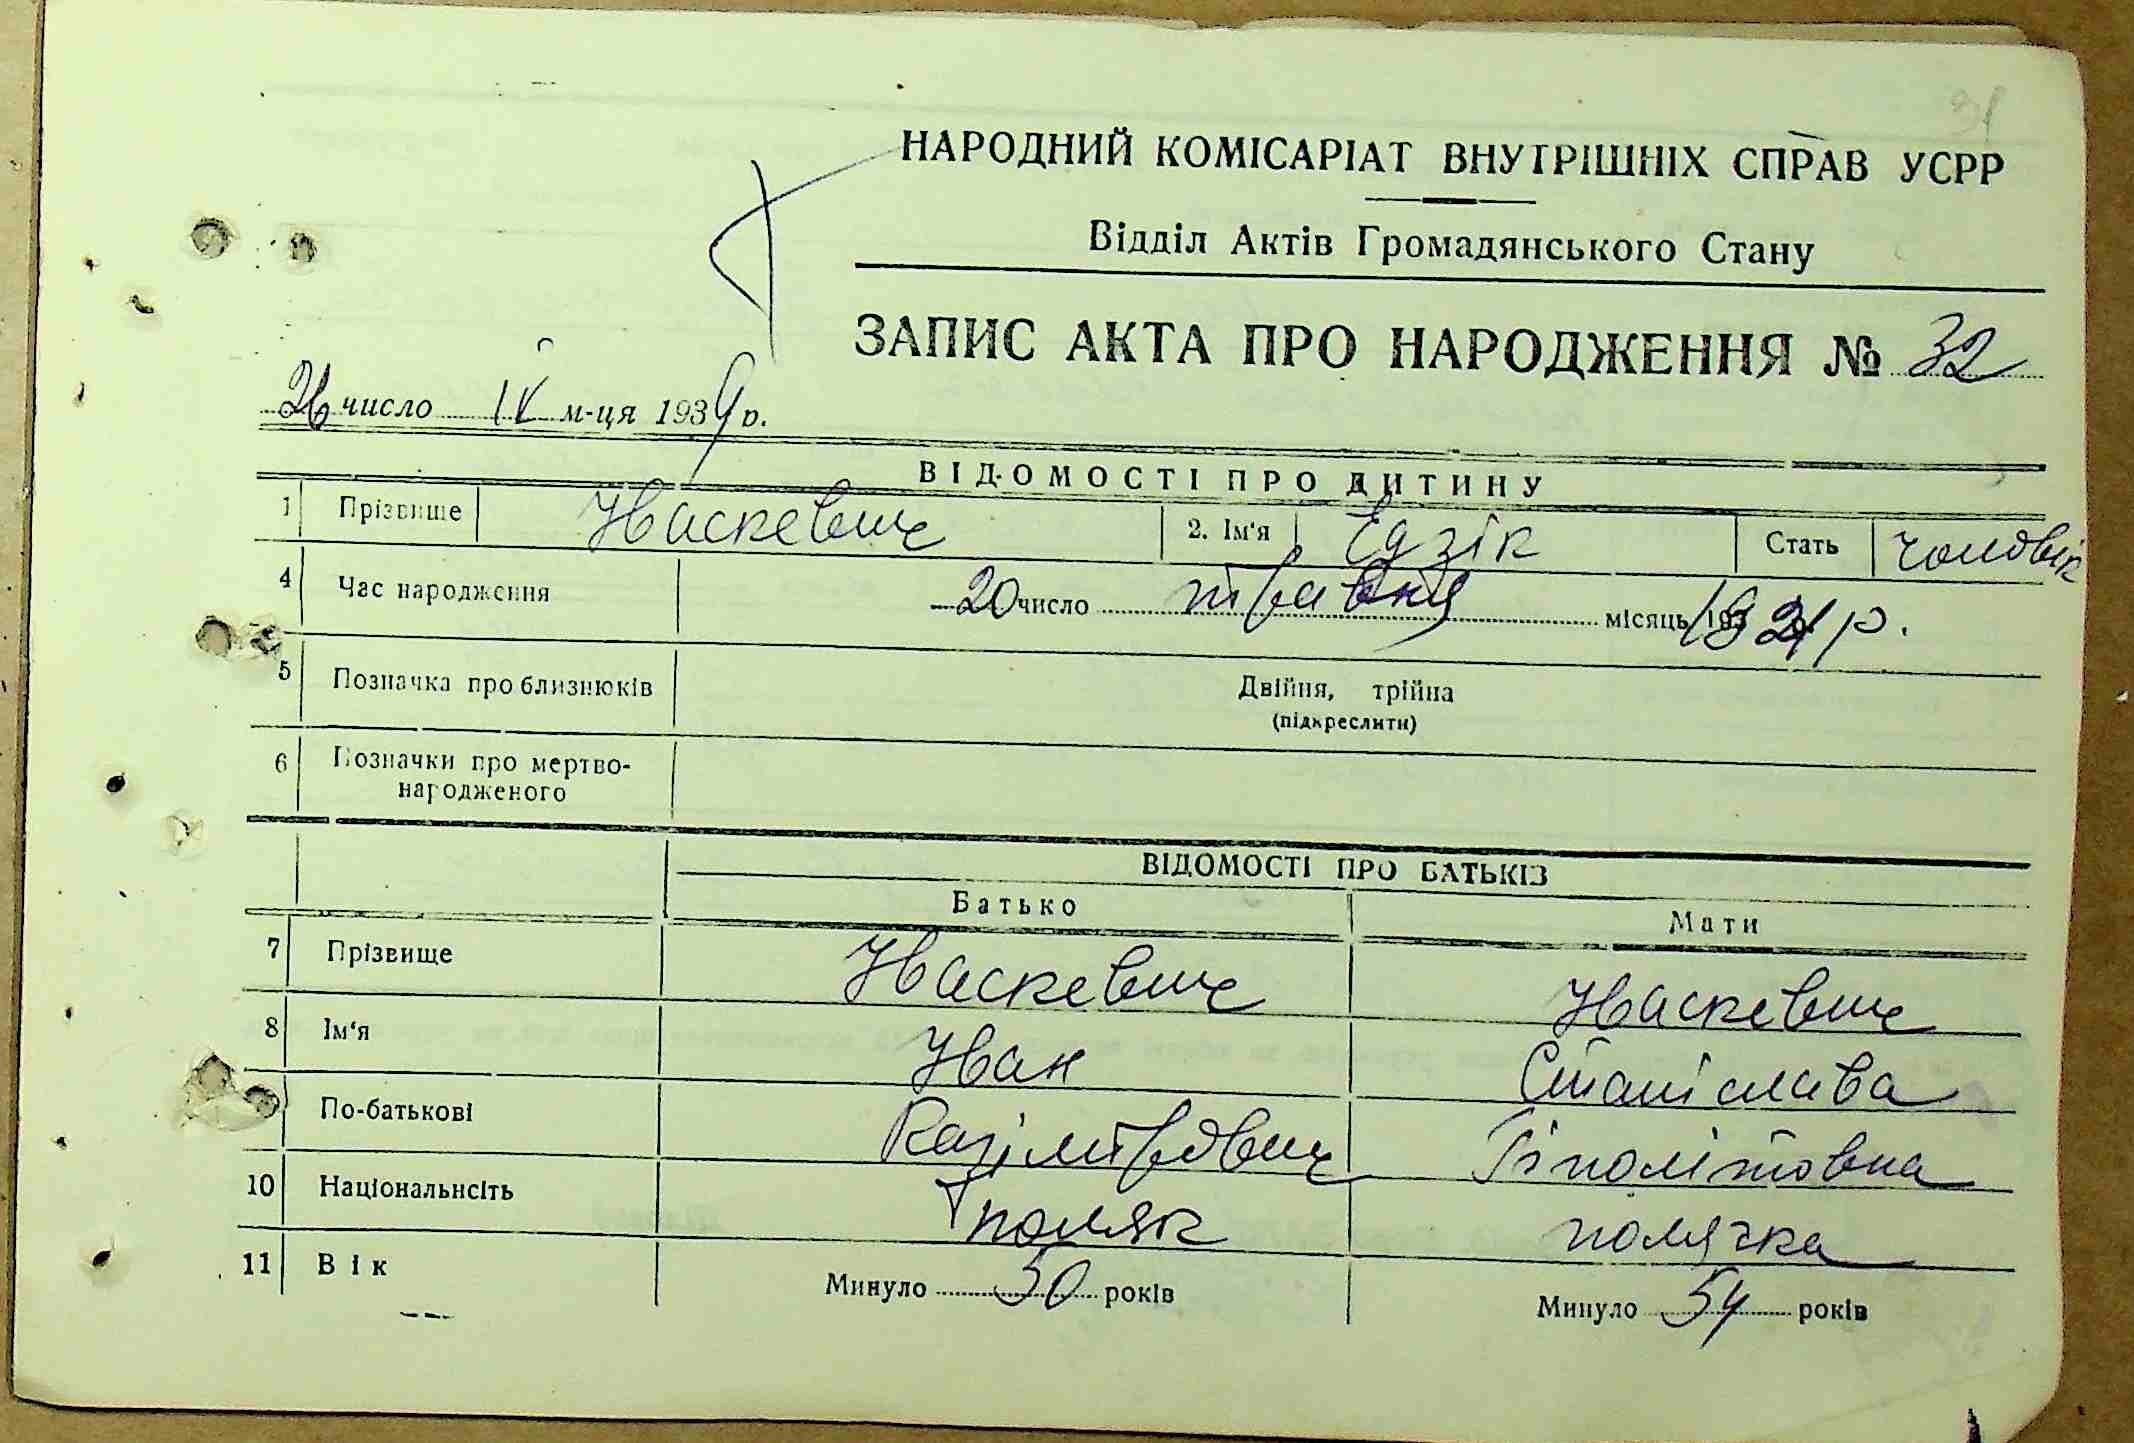 31
НАРОДНИЙ КОМІСАРІАТ ВНУТРІШНІХ СПРАВ УСРР
Відділ Актів Громадянського Стану
ЗАПИС АКТА ПРО НАРОДЖЕННЯ № 32
число IV м-ця 1939 р.
ВІДОМОСТІ ПРО ДИТИНУ
1 Прізвище Наскевич 2. Ім'я Едзік Стать чоловік
4 Час народження 20 число травня місяць 1921 р.
5 Позначка про близнюків Двійня, трійна
(підкреслити)
6 Позначки про мертво-
народженого
ВІДОМОСТІ ПРО БАТЬКІВ
Батько Мати
7 Прізвище Наскевич Наскевич
8 Ім'я Іван Станіслава
По-батькові Казімірович Іполітовна
10 Національнсіть поляк полячка
11 Вік Минуло 50 років Минуло 54 років